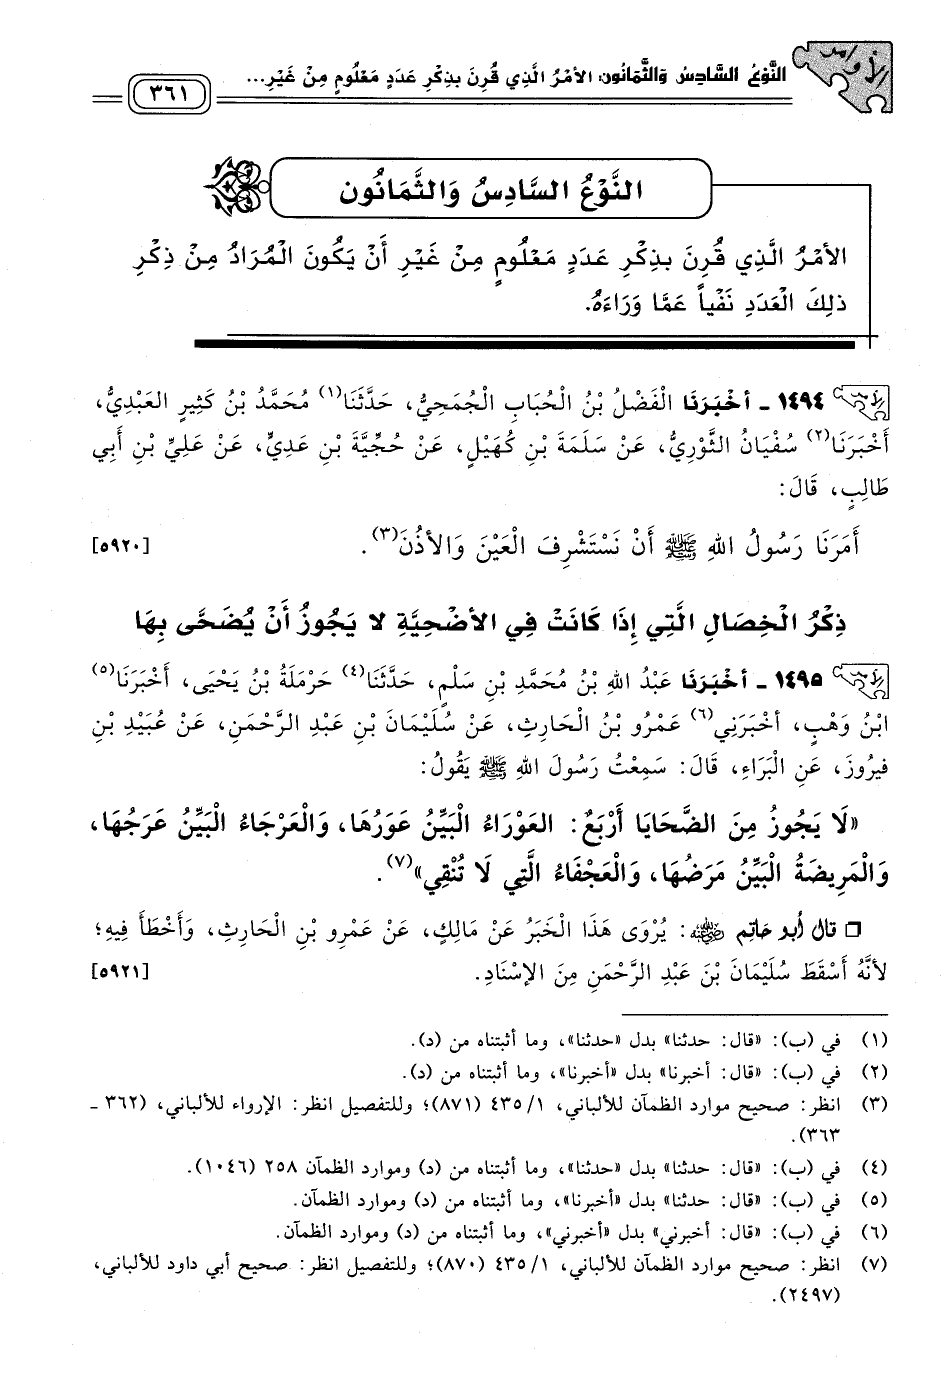 الأوامر
النَّوْعُ السَّادِسُ وَالثَّمَانُون: الأَمْرُ الَّذِي قُرِنَ بِذِكْرِ عَدَدٍ مَعْلُومٍ مِنْ غَيْرِ...
٣٦١
النَّوْعُ السَّادِسُ وَالثَّمَانُون
الأَمْرُ الَّذِي قُرِنَ بِذِكْرِ عَدَدٍ مَعْلُومٍ مِنْ غَيْرِ أَنْ يَكُونَ الْمُرَادُ مِنْ ذِكْرِ
ذلِكَ الْعَدَدِ نَفْياً عَمَّا وَرَاءَهُ.
الأوامر ١٤٩٤ - أَخْبَرَنَا الْفَضْلُ بْنُ الْحُبَابِ الْجُمَحِيُّ، حَدَّثَنَا(١) مُحَمَّدُ بْنُ كَثِيرٍ العَبْدِيُّ،
أَخْبَرَنَا(٢) سُفْيَانُ الثَّوْرِيُّ، عَنْ سَلَمَةَ بْنِ كُهَيْلٍ، عَنْ حُجَيَّةَ بْنِ عَدِيٍّ، عَنْ عَلِيِّ بْنِ أَبِي
طَالِبٍ، قَالَ:
أَمَرَنَا رَسُولُ اللهِ ﷺ أَنْ نَسْتَشْرِفَ الْعَيْنَ وَالأُذُنَ(٣). [٥٩٢٠]
ذِكْرُ الْخِصَالِ الَّتِي إِذَا كَانَتْ فِي الأُضْحِيَّةِ لا يَجُوزُ أَنْ يُضَحَّى بِهَا
الأوامر ١٤٩٥ - أَخْبَرَنَا عَبْدُ اللهِ بْنُ مُحَمَّدِ بْنِ سَلْمٍ، حَدَّثَنَا(٤) حَرْمَلَةُ بْنُ يَحْيَى، أَخْبَرَنَا(٥)
ابْنُ وَهْبٍ، أَخْبَرَنِي(٦) عَمْرُو بْنُ الْحَارِثِ، عَنْ سُلَيْمَانَ بْنِ عَبْدِ الرَّحْمَنِ، عَنْ عُبَيْدِ بْنِ
فيرُوزَ، عَنِ الْبَرَاءِ، قَالَ: سَمِعْتُ رَسُولَ اللهِ ﷺ يَقُولُ:
«لَا يَجُوزُ مِنَ الضَّحَايَا أَرْبَعٌ: العَوْرَاءُ الْبَيِّنُ عَوَرُهَا، وَالْعَرْجَاءُ الْبَيِّنُ عَرَجُهَا،
وَالْمَرِيضَةُ الْبَيِّنُ مَرَضُهَا، وَالْعَجْفَاءُ الَّتِي لَا تُنْقِي»(٧).
❑ قال أبو حاتم رضي الله عنه: يُرْوَى هَذَا الْخَبَرُ عَنْ مَالِكٍ، عَنْ عَمْرِو بْنِ الْحَارِثِ، وَأَخْطَأَ فِيهِ؛
لأَنَّهُ أَسْقَطَ سُلَيْمَانَ بْنَ عَبْدِ الرَّحْمَنِ مِنَ الإِسْنَادِ. [٥٩٢١]
(١) في (ب): «قال: حدثنا» بدل «حدثنا»، وما أثبتناه من (د).
(٢) في (ب): «قال: أخبرنا» بدل «أخبرنا»، وما أثبتناه من (د).
(٣) انظر: صحيح موارد الظمآن للألباني، ٤٣٥/١ (٨٧١)؛ وللتفصيل انظر: الإرواء للألباني، (٣٦٢ -
٣٦٣).
(٤) في (ب): «قال: حدثنا» بدل «حدثنا»، وما أثبتناه من (د) وموارد الظمآن ٢٥٨ (١٠٤٦).
(٥) في (ب): «قال: حدثنا» بدل «أخبرنا»، وما أثبتناه من (د) وموارد الظمآن.
(٦) في (ب): «قال: أخبرني» بدل «أخبرني»، وما أثبتناه من (د) وموارد الظمآن.
(٧) انظر: صحيح موارد الظمآن للألباني، ٤٣٥/١ (٨٧٠)؛ وللتفصيل انظر: صحيح أبي داود للألباني،
(٢٤٩٧).